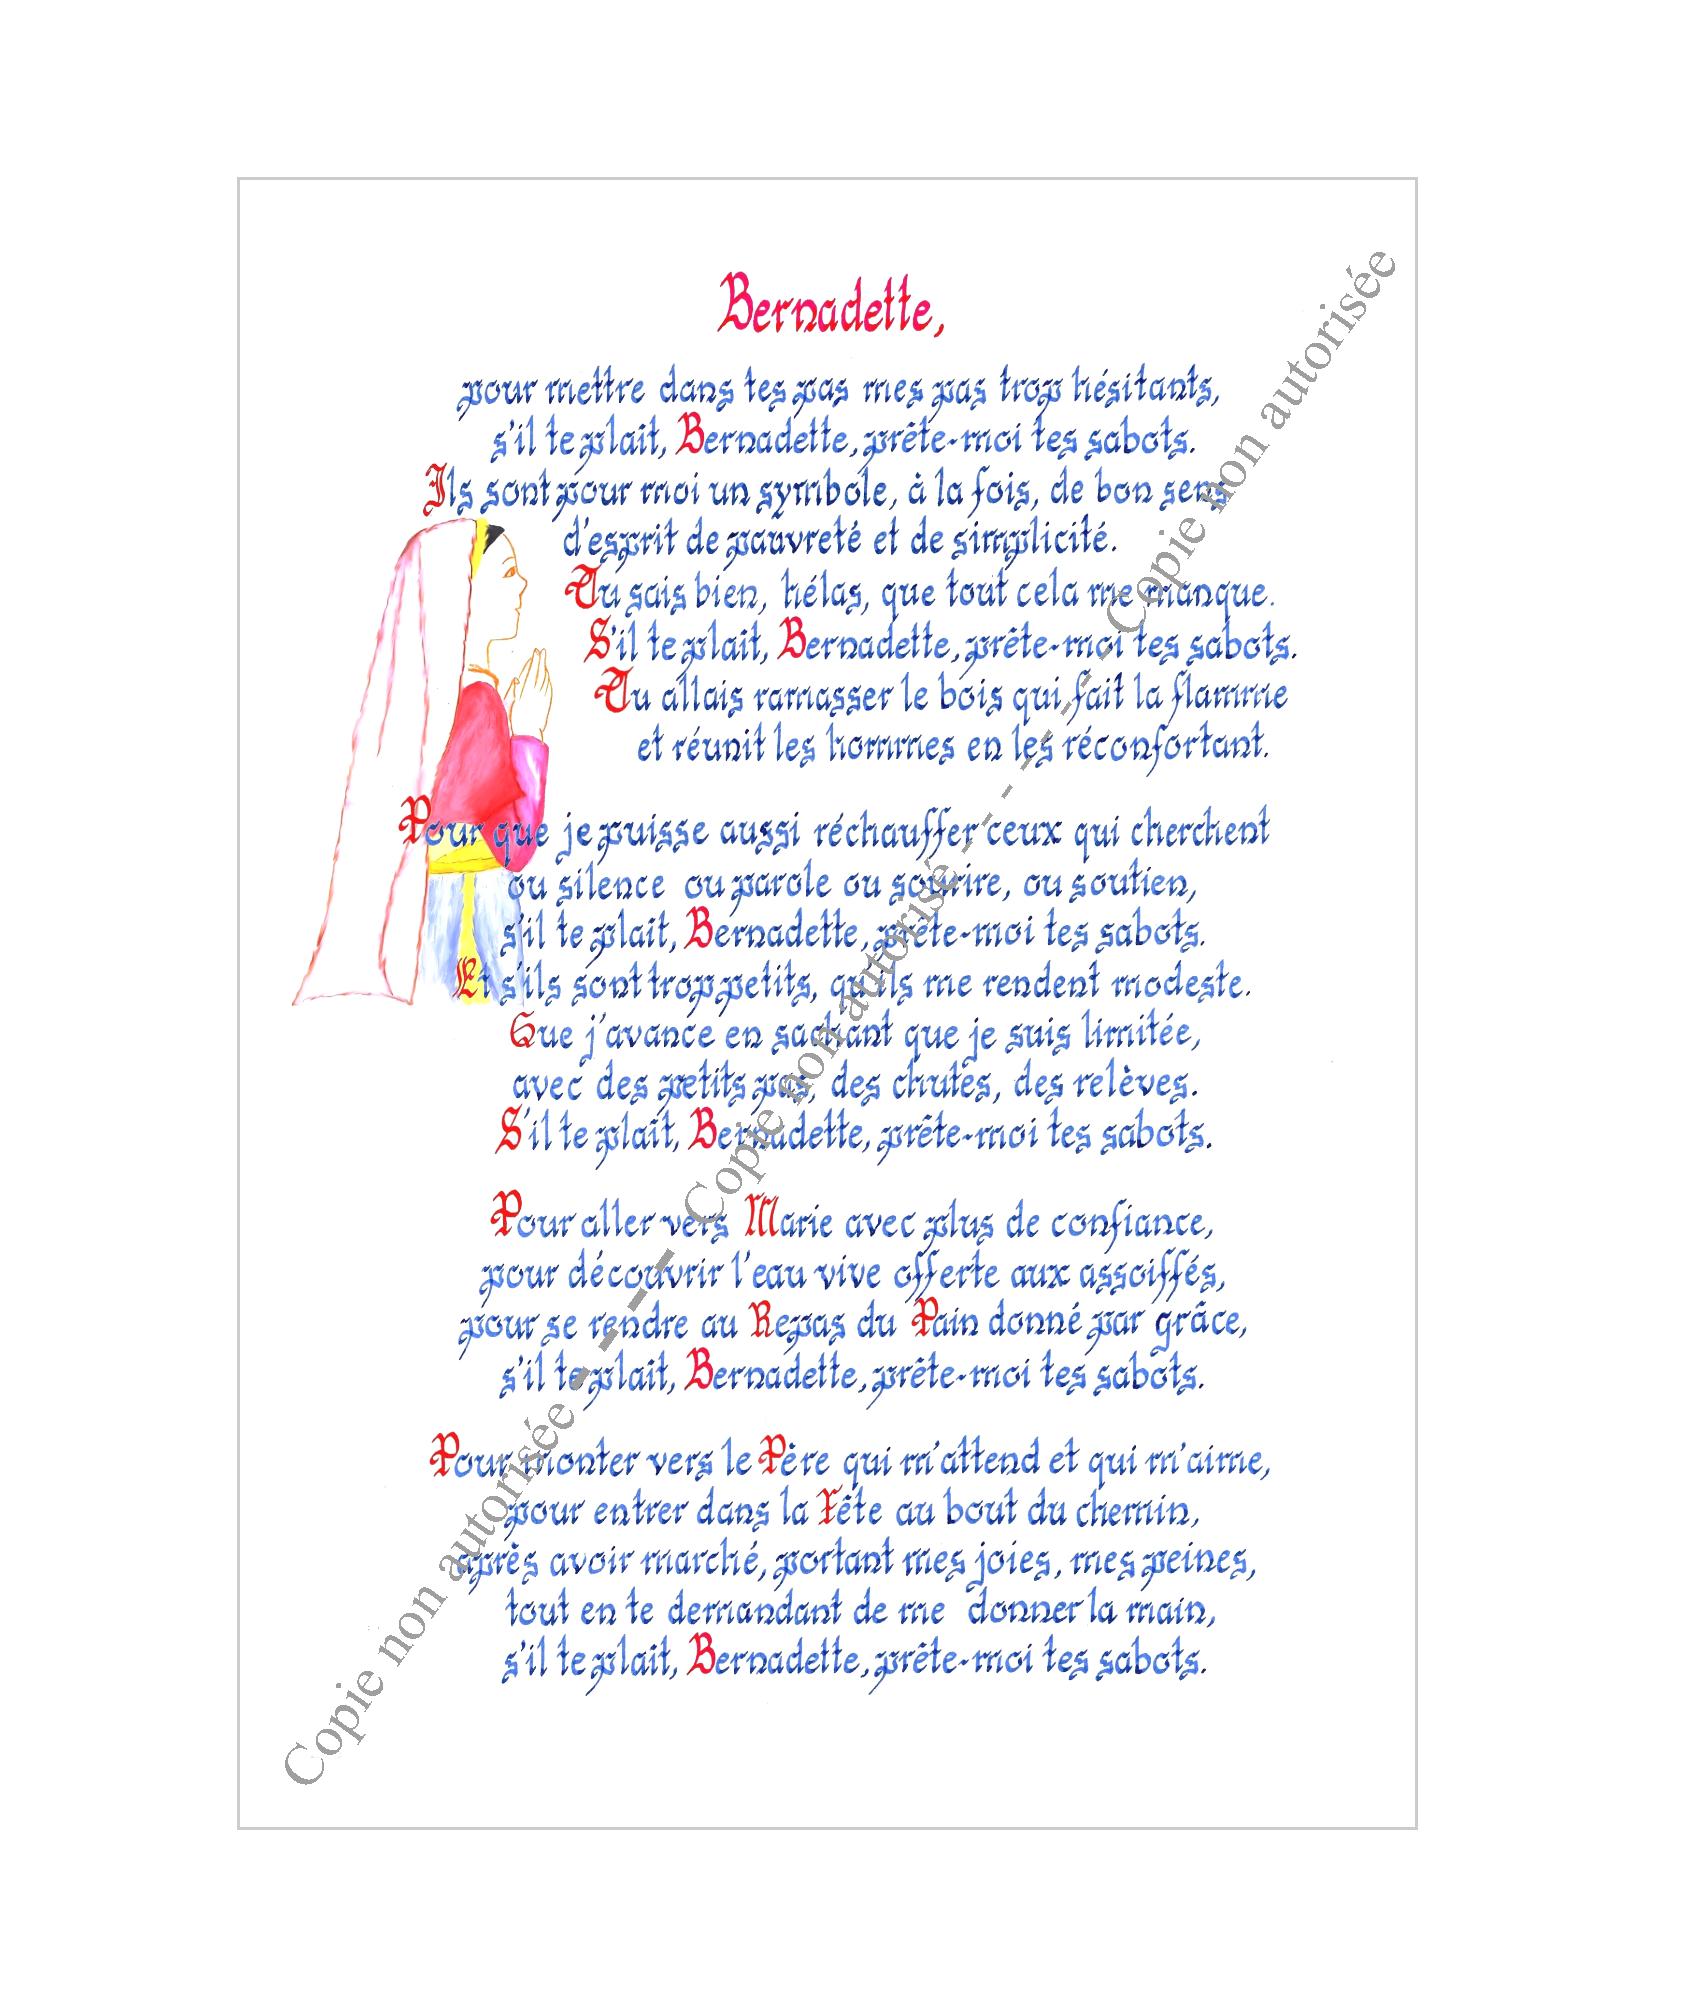 Bernadette,
pour mettre dans tes pas mes pas trop hésitants,
s'il te plaît, Bernadette, prête-moi tes sabots.
Ils sont pour moi un symbole, à la fois, de bon sens
d'esprit de pauvreté et de simplicité.
Tu sais bien, hélas, que tout cela me manque.
S'il te plaît, Bernadette, prête-moi tes sabots.
Tu allais ramasser le bois qui fait la flamme
et réunit les hommes en les réconfortant.
Pour que je puisse aussi réchauffer ceux qui cherchent
ou silence ou parole ou sourire, ou soutien,
s'il te plaît, Bernadette, prête-moi tes sabots.
Et s'ils sont trop petits, qu'ils me rendent modeste.
Que j'avance en sachant que je suis limitée,
avec des petits pas, des chutes, des relèves.
S'il te plaît, Bernadette, prête-moi tes sabots.
Pour aller vers Marie avec plus de confiance,
pour découvrir l'eau vive offerte aux assoiffés,
pour se rendre au Repas du Pain donné par grâce,
s'il te plaît, Bernadette, prête-moi tes sabots.
Pour monter vers le Père qui m'attend et qui m'aime,
pour entrer dans la Fête au bout du chemin,
après avoir marché, portant mes joies, mes peines,
tout en te demandant de me donner la main,
s'il te plaît, Bernadette, prête-moi tes sabots.
Copie non autorisée - - - - - Copie non autorisée - - - - - - Copie non autorisée